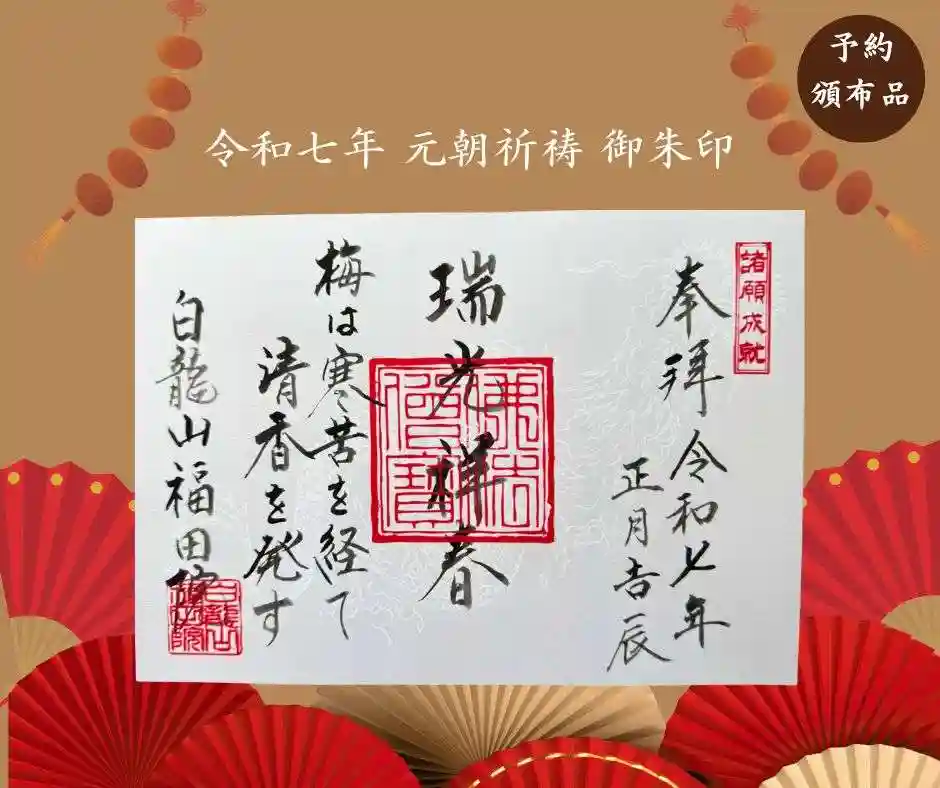 予約
頒布品
令和七年 元朝祈祷 御朱印
諸願成就
奉拜 令和七年
正月吉辰
瑞光祥春
佛法僧寶
梅は寒苦を経て
清香を発す
白龍山福田院
白龍山
福田院